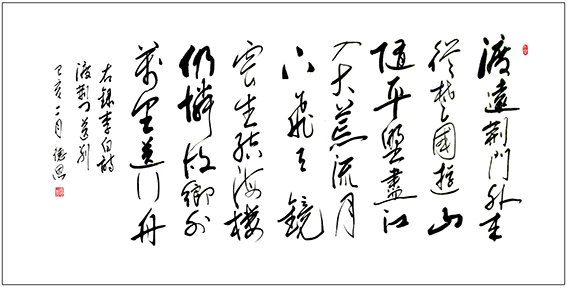 渡遠荊門外来
從楚國遊山
隨平野盡江
入大荒流月
下飛天鏡
雲生結海樓
仍憐故鄉水
萬里送行舟
右録李白詩
渡荊門送別
己亥二月德恩